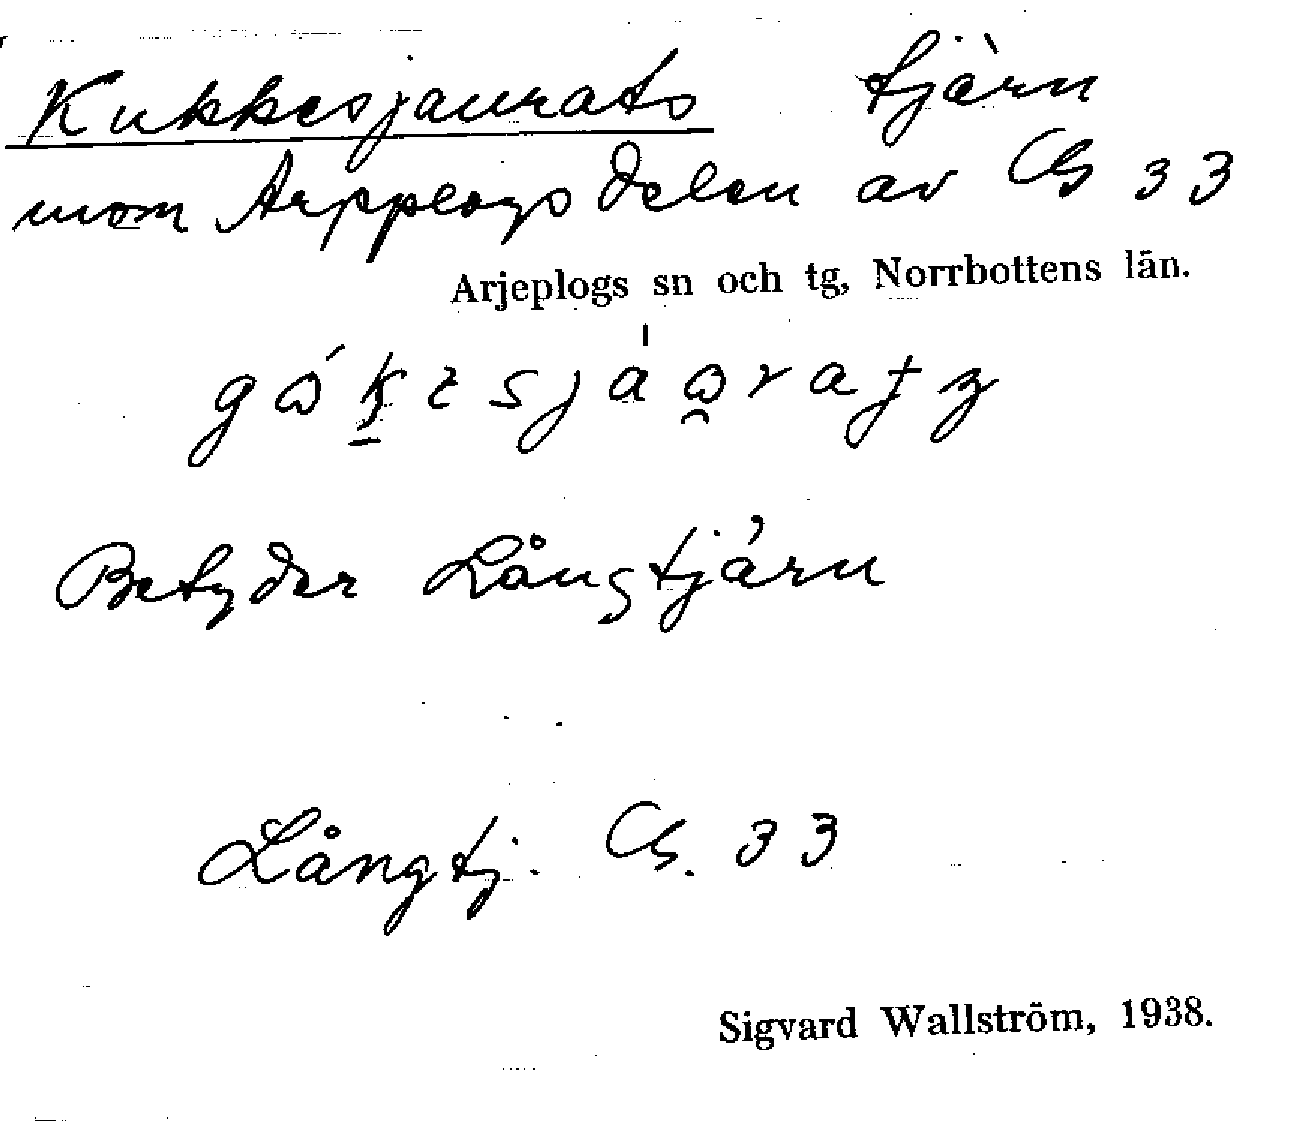 Kukkesjaurats tjärn
inom Arjeplogsdelen av Cb 33
Arjeplogs sn och tg, Norrbottens län.
Betyder Långtjärn
Långtj. Cb. 33
Sigvard Wallström, 1938.